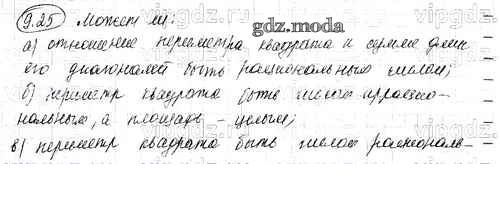 9.25 Может ли:
gdz.moda
а) отношение периметра квадрата к сумме длин
его диагоналей быть рациональным числом;
б) периметр квадрата быть числом иррацио-
нальным, а площадь - целым;
в) периметр квадрата быть числом рациональ-